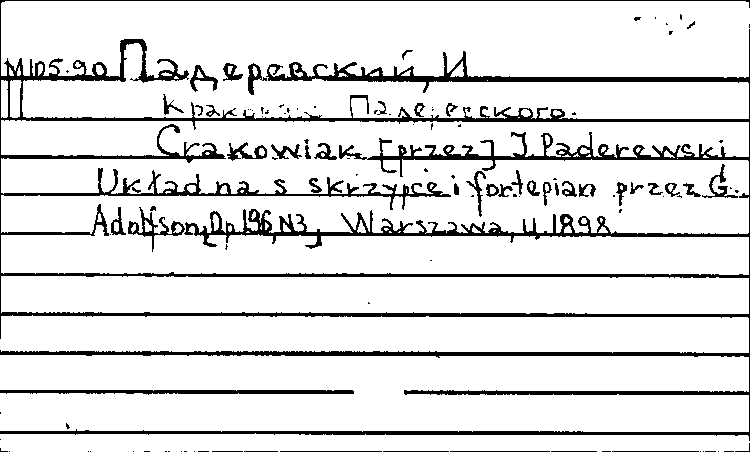 М105.90 Падеревский, И
Краковяк Падеревского.
Crakowiak [przez] J. Paderewski
Układ na s skrzypce i fortepian przez G.
Adolfson, [Op 196, N3], Warszawa, ц. 1898.